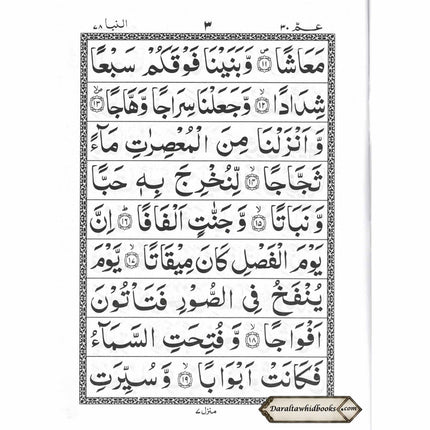 عمّ ٣٠ ٣ النبا ٧٨
مَعَاشًا ۝١١ وَّبَنَيْنَا فَوْقَكُمْ سَبْعًا
شِدَادًا ۝١٢ وَّجَعَلْنَا سِرَاجًا وَّهَّاجًا ۝١٣
وَّاَنْزَلْنَا مِنَ الْمُعْصِرٰتِ مَآءً
ثَجَّاجًا ۝١٤ لِّنُخْرِجَ بِهٖ حَبًّا
وَّنَبَاتًا ۝١٥ وَّجَنّٰتٍ اَلْفَافًا ۝١٦ اِنَّ
يَوْمَ الْفَصْلِ كَانَ مِيْقَاتًا ۝١٧ يَّوْمَ
يُنْفَخُ فِى الصُّوْرِ فَتَاْتُوْنَ
اَفْوَاجًا ۝١٨ وَّفُتِحَتِ السَّمَآءُ
فَكَانَتْ اَبْوَابًا ۝١٩ وَّسُيِّرَتِ
منزل ٧
Daraltawhidbooks.com